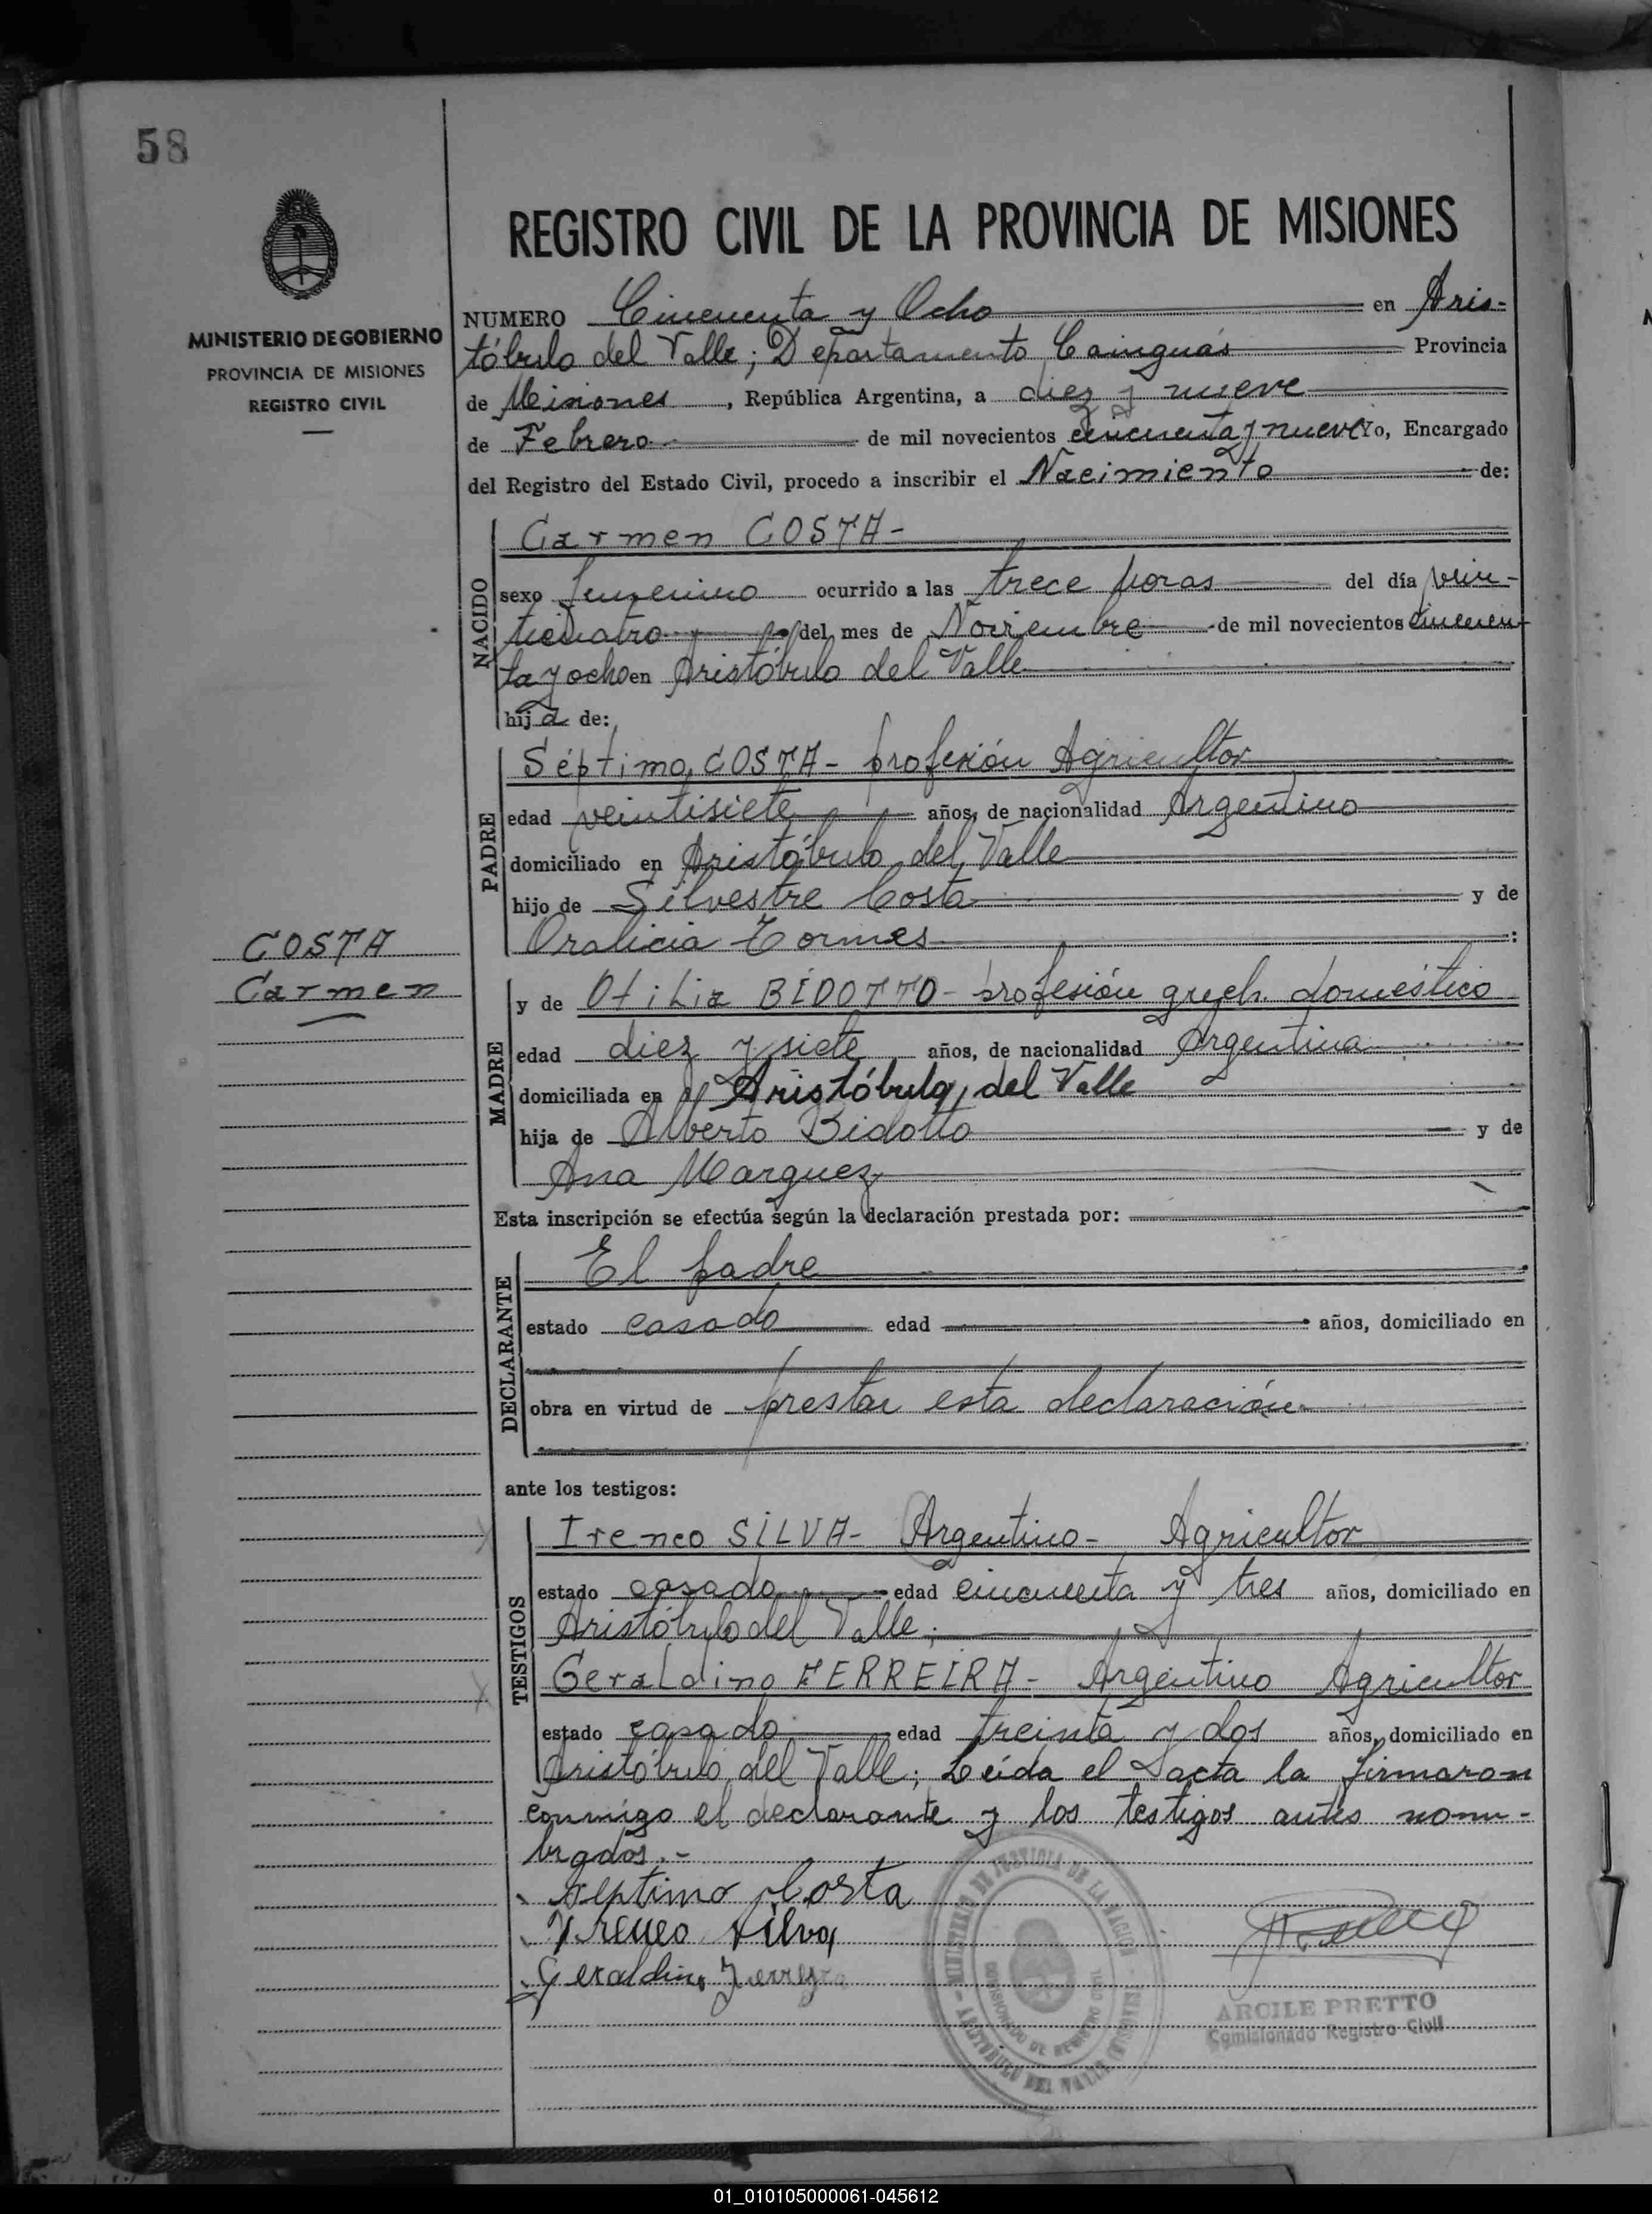 58
REGISTRO CIVIL DE LA PROVINCIA DE MISIONES
MINISTERIO DE GOBIERNO
PROVINCIA DE MISIONES
REGISTRO CIVIL
NUMERO Cincuenta y Ocho en Aris=
tóbulo del Valle; Departamento Cainguás Provincia
de Misiones, República Argentina, a diez y nueve
de Febrero de mil novecientos cincuenta y nueve Yo, Encargado
del Registro del Estado Civil, procedo a inscribir el Nacimiento de:
NACIDO
Carmen COSTA-
sexo femenino ocurrido a las trece horas del día vein-
ticuatro del mes de Noviembre de mil novecientos cincuen-
ta y ocho en Aristóbulo del Valle
hija de:
PADRE
Séptimo COSTA- profesión Agricultor
edad veintisiete años, de nacionalidad Argentino
domiciliado en Aristóbulo del Valle
hijo de Silvestre Costa y de
Oralicia Tormes
COSTA
Carmen
MADRE
y de Otilia BIDOTTO- profesión doméstico
edad diez y siete años, de nacionalidad Argentina
domiciliada en Aristóbulo del Valle
hija de Alberto Bidotto y de
Ana Marquez
Esta inscripción se efectúa según la declaración prestada por:
DECLARANTE
El padre
estado casado edad años, domiciliado en
obra en virtud de prestar esta declaración
ante los testigos:
TESTIGOS
Ireneo SILVA- Argentino- Agricultor
estado casado edad cincuenta y tres años, domiciliado en
Aristóbulo del Valle;
Geraldino FERREIRA- Argentino Agricultor
estado casado edad treinta y dos años, domiciliado en
Aristóbulo del Valle; Leida el acta la firmaron
conmigo el declarante y los testigos antes nom-
brados.-
Septimo Costa
Yreneo Silva
Geraldino Ferreyra
MINISTERIO DE JUSTICIA DE LA NACION
ARISTOBULO DEL VALLE
ARCILE PRETTO
Comisionado Registro Civil
01_010105000061-045612